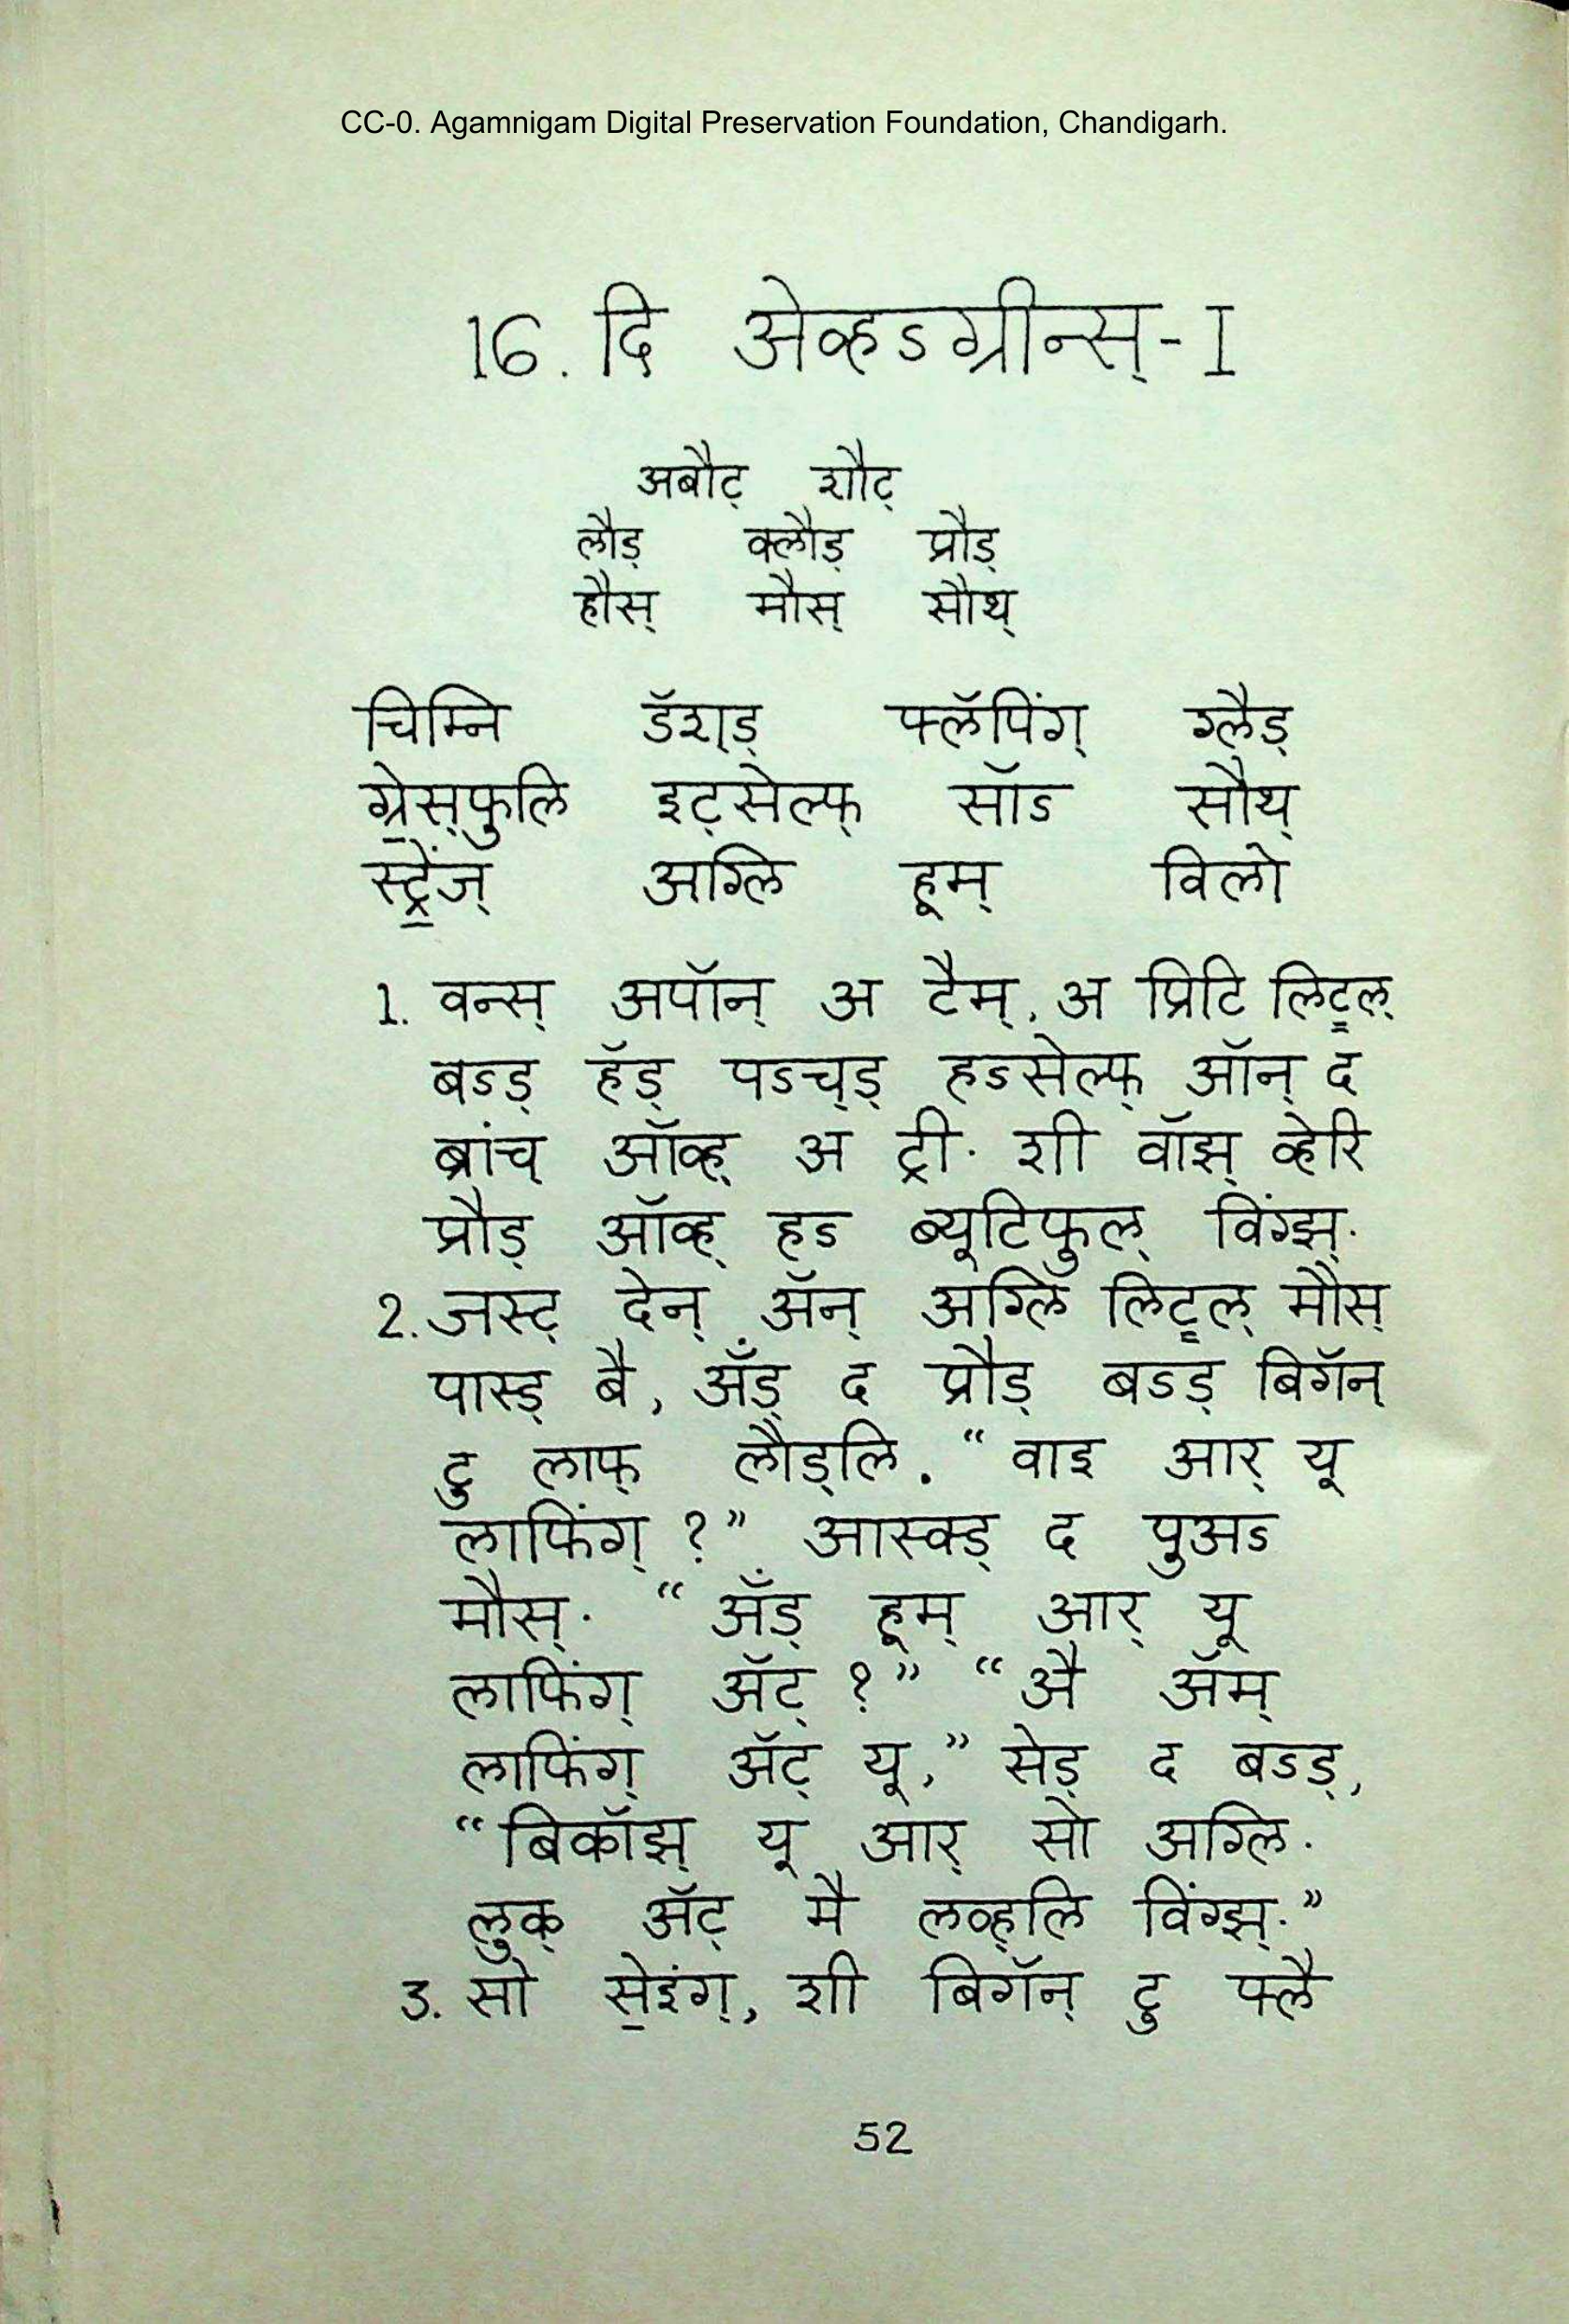 CC-0. Agamnigam Digital Preservation Foundation, Chandigarh.
16. दि अेव्हऽग्रीन्स्-I
अबौट् शौट्
लौड् क्लौड् प्रौड्
हौस् मौस् सौथ्
चिम्नि डॅश्ड् फ्लॅपिंग् ग्लैड्
ग्रे॒स्‌फुलि इट्सेल्फ् सॉऽ सौथ्
स्ट्रें॒ज् अग्लि हूम् विलो
1. वन्स् अपॉन् अ टैम्, अ प्रिटि लिट्॒ल्
बऽड् हॅड् पऽच्ड् हऽसेल्फ् ऑन् द
ब्रांच् ऑव्ह् अ ट्री. शी वॉझ् व्हेरि
प्रौड् ऑव्ह् हऽ ब्यूटिफुल् विंग्झ्.
2. जस्ट् देन् ॲन् अग्लि लिट्॒ल् मौस्
पास्ड् बै, ॲंड् द प्रौड् बऽड् बिगॅन्
टु लाफ् लौड्लि. “वाइ आर् यू
लाफिंग् ?” आस्क्ड् द पुअऽ
मौस्. “ॲंड् हूम् आर् यू
लाफिंग् ॲट् ?” “अै ॲम्
लाफिंग् ॲट् यू,” सेड् द बऽड्,
“बिकॉझ् यू आर् सो अग्लि.
लुक् ॲट् मै लव्ह्लि विंग्झ्.”
3. सो से॒इंग्, शी बिगॅन् टु फ्लै
52